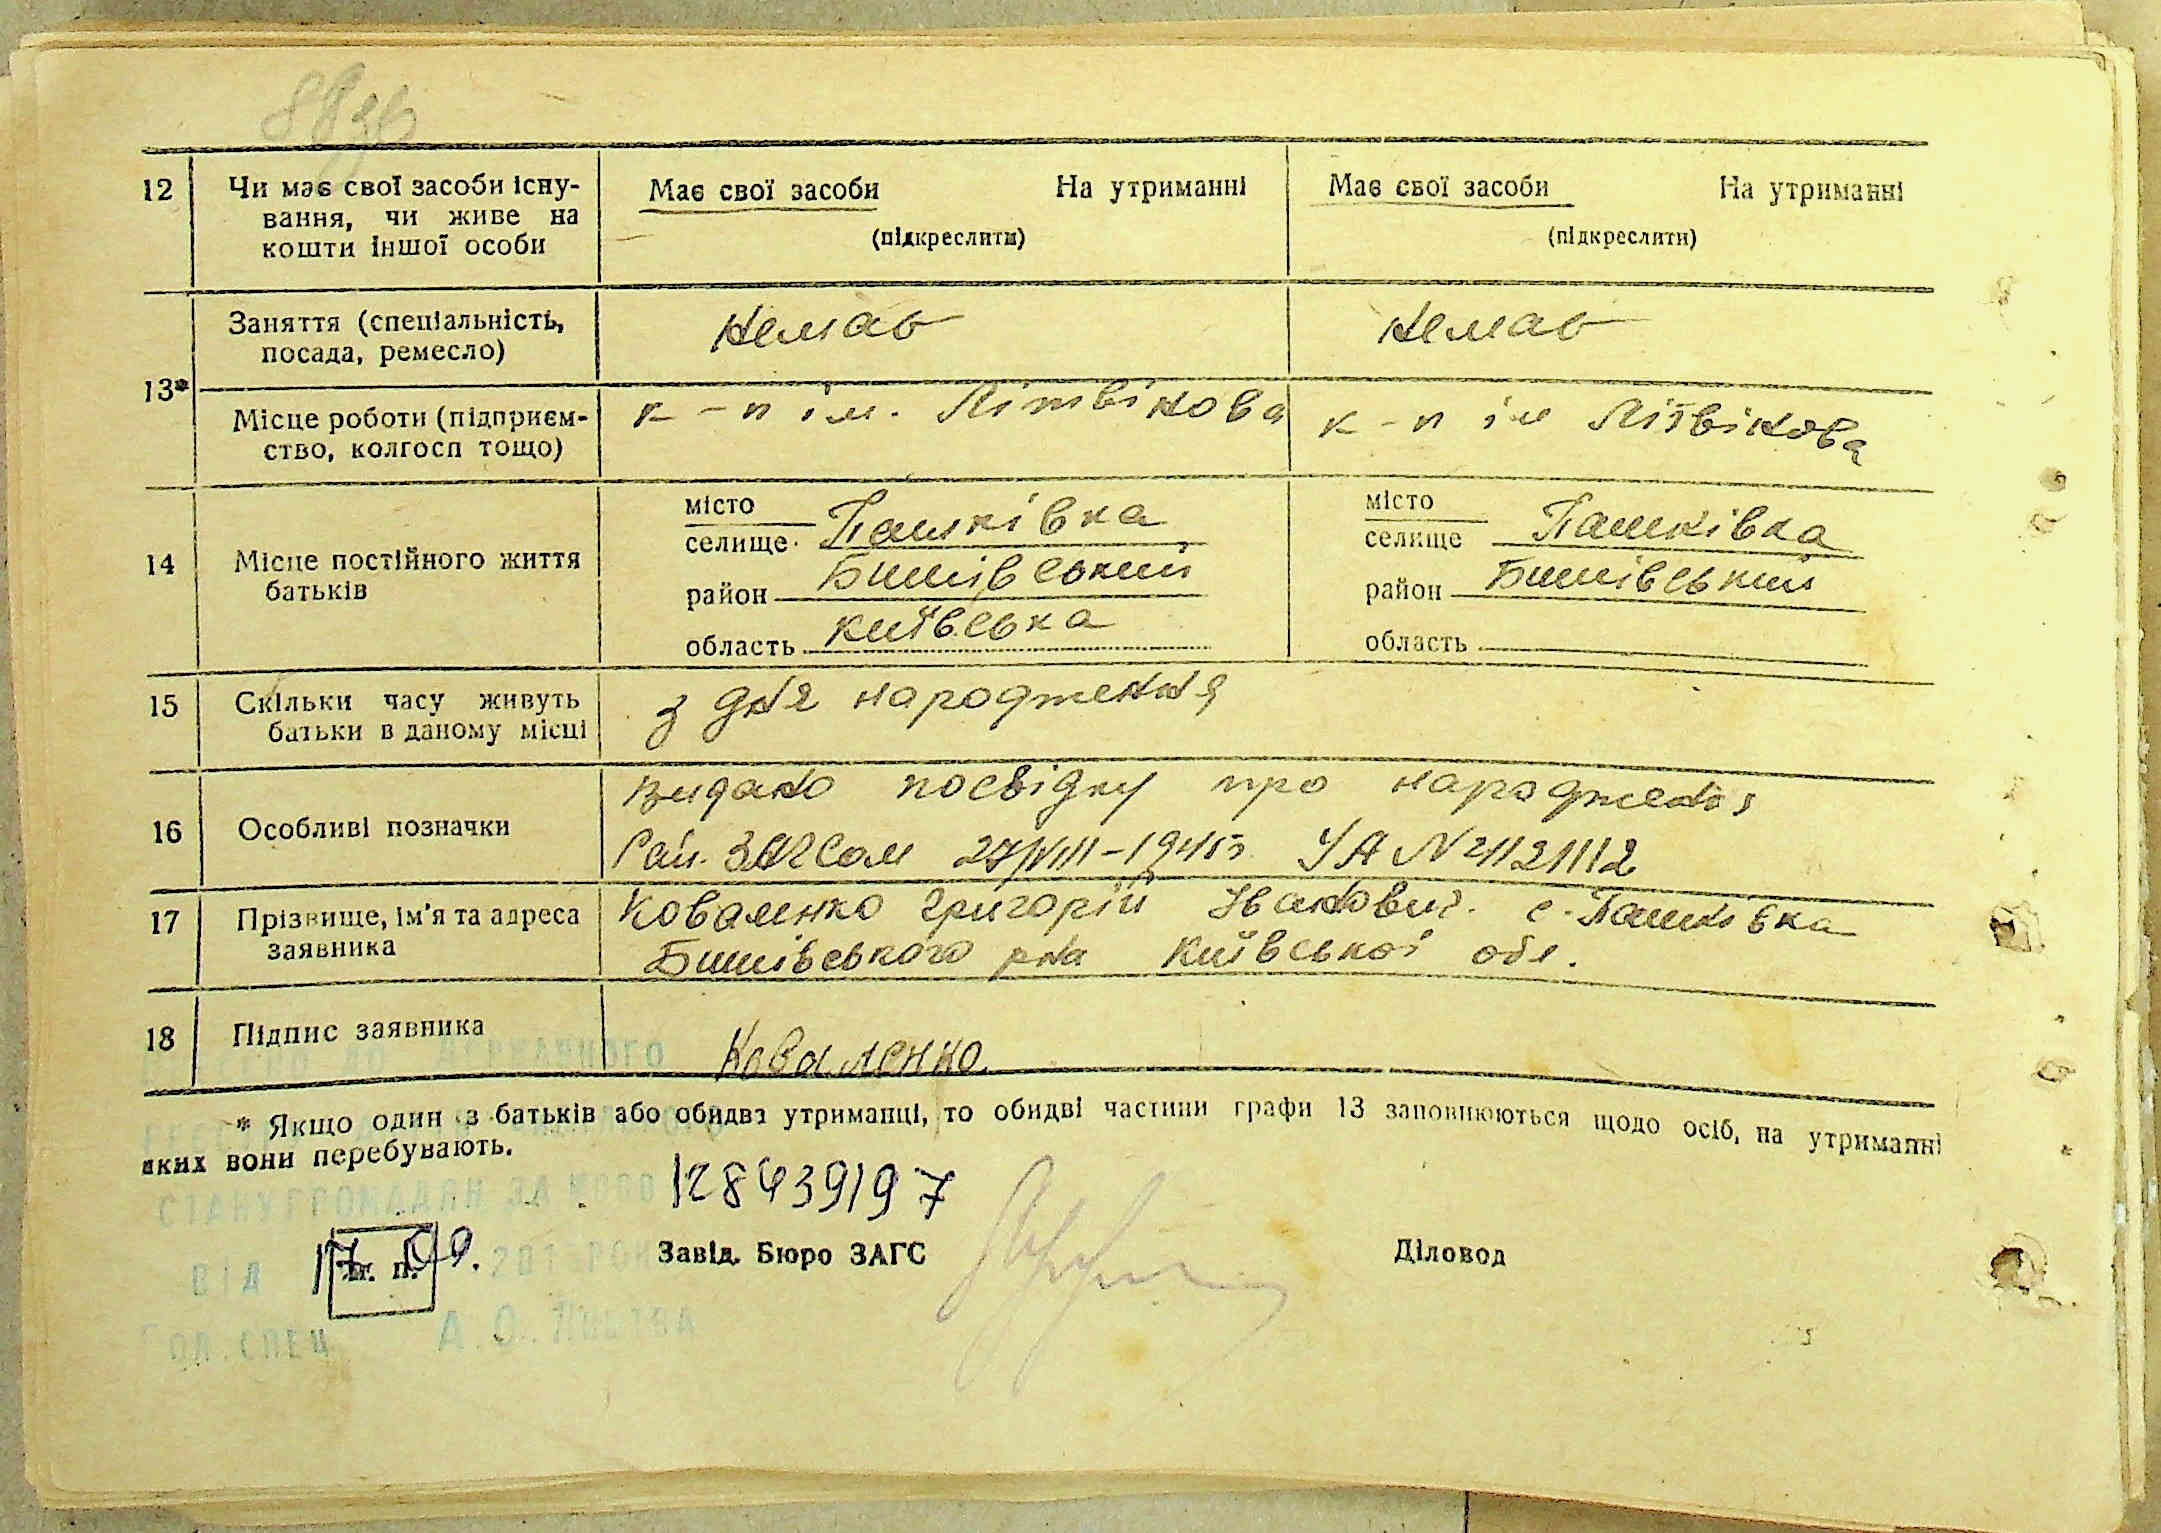 12 Чи має свої засоби існу-
вання, чи живе на
кошти іншої особи
Має свої засоби На утриманні
(підкреслити)
Має свої засоби На утриманні
(підкреслити)
13*
Заняття (спеціальність,
посада, ремесло)
немає
немає
Місце роботи (підприєм-
ство, колгосп тощо)
к-п ім. Літвінова
к-п ім Літвінова
14 Місце постійного життя
батьків
місто
селище Пашківка
район Бишівський
область київська
місто
селище Пашківка
район Бишівський
область
15 Скільки часу живуть
батьки в даному місці
з дня народження
16 Особливі позначки
видано посвідку про народження
Рай. ЗАГСом УА №
17 Прізвище, ім'я та адреса
заявника
Коваленко Григорій Іванович. с. Пашківка
Бишівського р-на Київської обл.
18 Підпис заявника
Коваленко
* Якщо один з батьків або обидва утриманці, то обидві частини графи 13 заповнюються щодо осіб, на утриманні
яких вони перебувають.
СТАНУ ГРОМАДЯН ЗА
128439197
ВІД 17. 09. 201
м. п.
Завід. Бюро ЗАГС
Діловод
ГОЛ. СПЕЦ А.О.